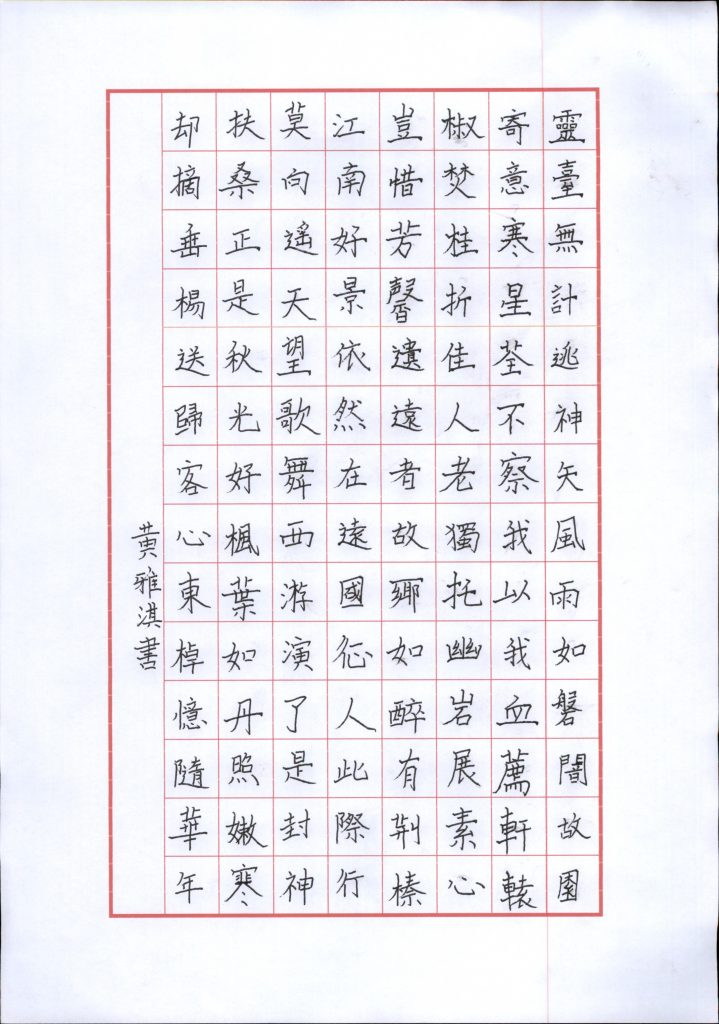 靈臺無計逃神矢風雨如磐闇故園
寄意寒星荃不察我以我血薦軒轅
椒焚桂折佳人老獨托幽岩展素心
豈惜芳馨遺遠者故鄉如醉有荆榛
江南好景依然在遠國征人此際行
莫向遙天望歌舞西游演了是封神
扶桑正是秋光好楓葉如丹照嫩寒
却摘垂楊送歸客心東棹憶隨華年
黄雅淇書